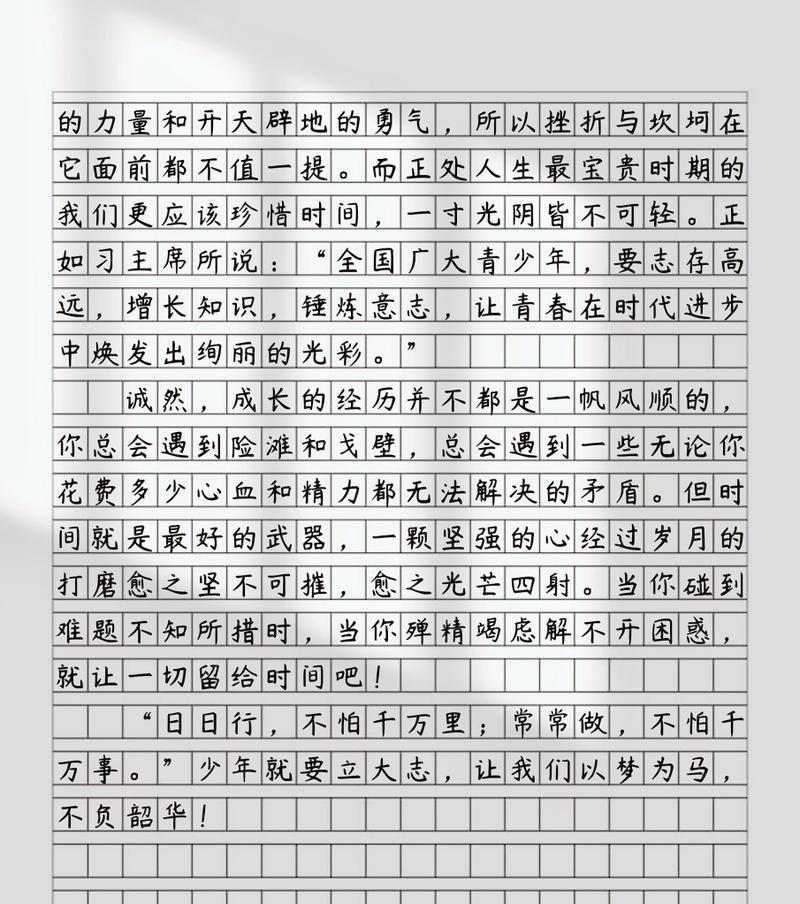 的力量和开天辟地的勇气，所以挫折与坎坷在
它面前都不值一提。而正处人生最宝贵时期的
我们更应该珍惜时间，一寸光阴皆不可轻。正
如习主席所说：“全国广大青少年，要志存高
远，增长知识，锤炼意志，让青春在时代进步
中焕发出绚丽的光彩。”
诚然，成长的经历并不都是一帆风顺的，
你总会遇到险滩和戈壁，总会遇到一些无论你
花费多少心血和精力都无法解决的矛盾。但时
间就是最好的武器，一颗坚强的心经过岁月的
打磨愈之坚不可摧，愈之光芒四射。当你碰到
难题不知所措时，当你殚精竭虑解不开困惑，
就让一切留给时间吧！
“日日行，不怕千万里；常常做，不怕千
万事。”少年就要立大志，让我们以梦为马，
不负韶华！